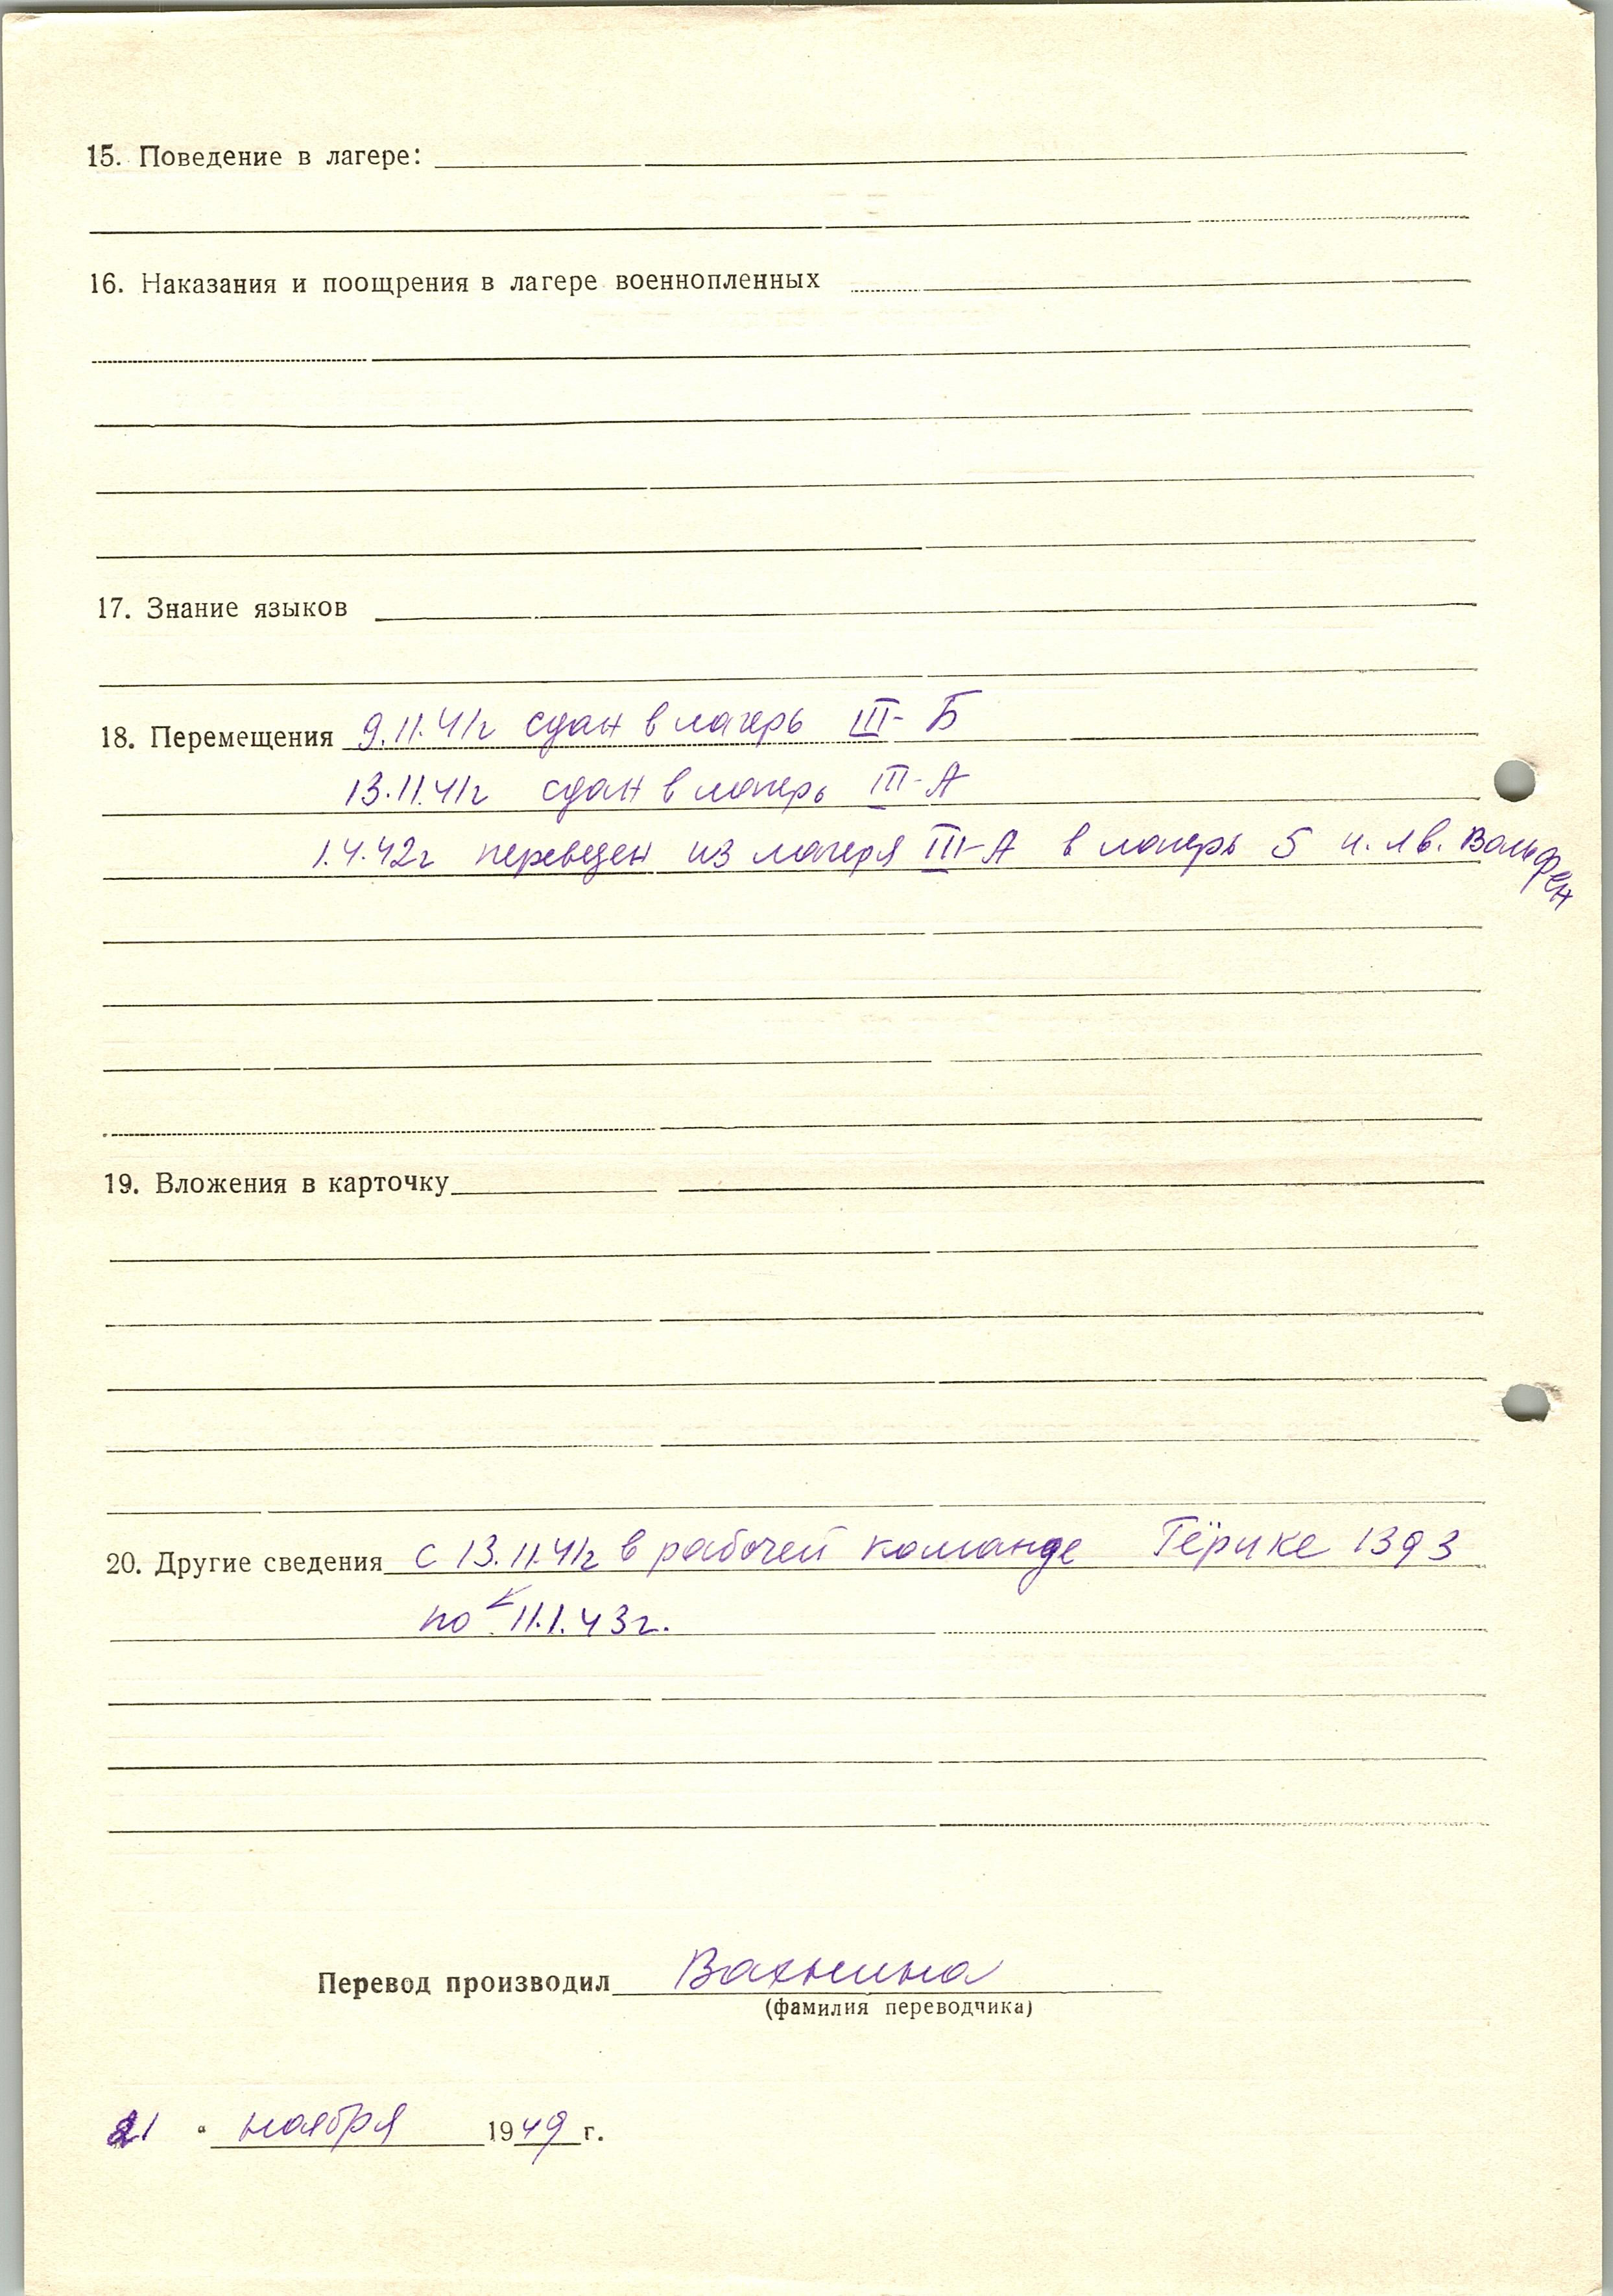 15. Поведение в лагере:
16. Наказания и поощрения в лагере военнопленных
17. Знание языков
18. Перемещения 9.11.41г сдан в лагерь III-Б
13.11.41г сдан в лагерь III-А
1.4.42г переведен из лагеря III-А в лагерь 5 Вольфен
19. Вложения в карточку
20. Другие сведения с 13.11.41г в рабочей команде Гёрике 1393
по 11.1.43г.
Перевод производил Вахнина
(фамилия переводчика)
21 " ноября 1949 г.